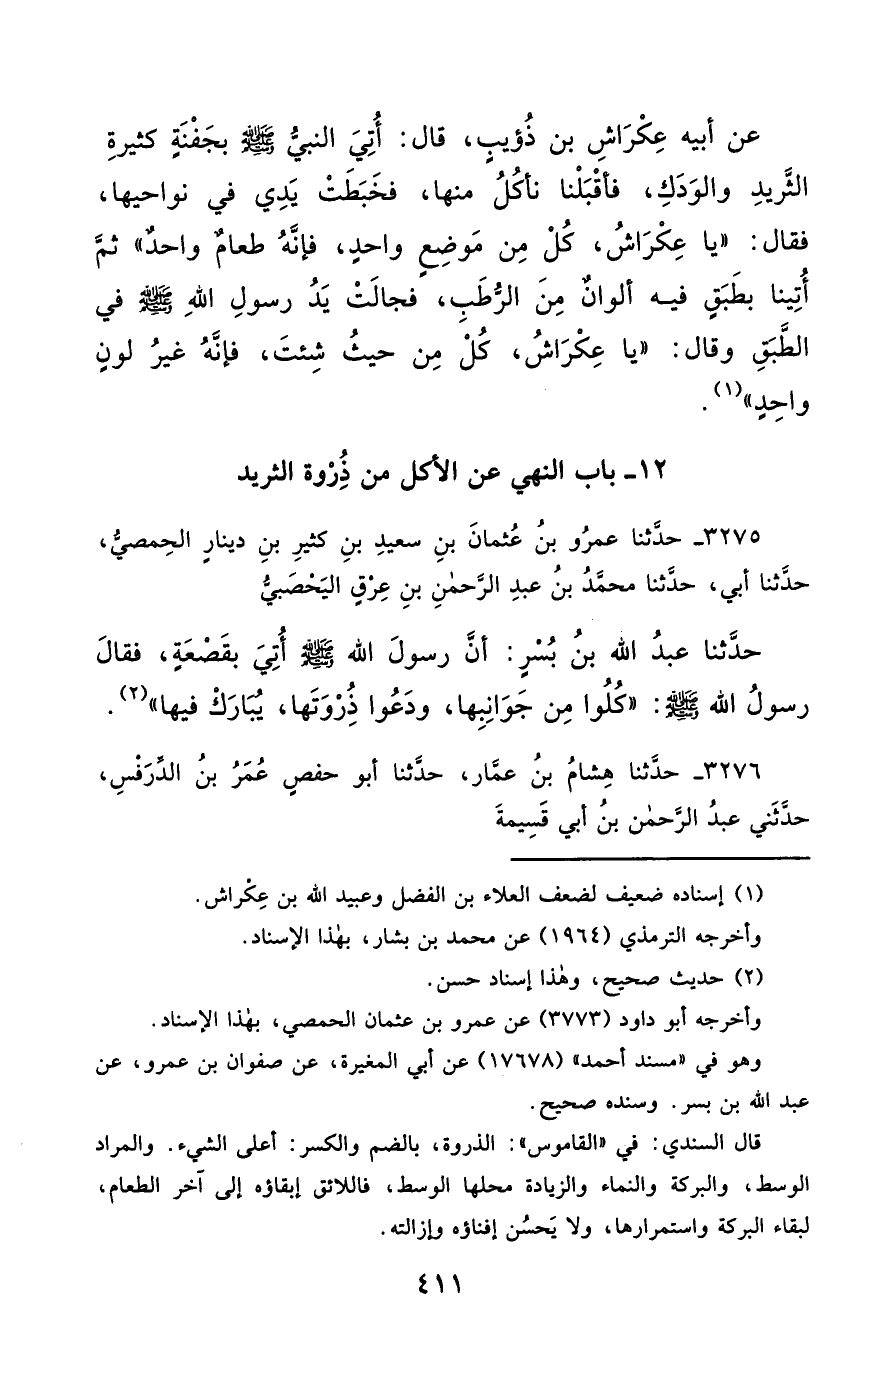 عن أبيه عِكْرَاشِ بن ذُؤيبٍ، قال: أُتِيَ النبيُّ ﷺ بجَفْنَةٍ كثيرةِ
الثَّريدِ والوَدَكِ، فأقْبَلْنا نأكُلُ منها، فخَبَطَتْ يَدِي في نواحيها،
فقال: «يا عِكْرَاشُ، كُلْ مِن مَوضِعٍ واحدٍ، فإنَّهُ طعامٌ واحدٌ» ثمَّ
أُتِينا بطَبَقٍ فيه ألوانٌ مِنَ الرُّطَبِ، فجالَتْ يَدُ رسولِ اللهِ ﷺ في
الطَّبَقِ وقال: «يا عِكْرَاشُ، كُلْ مِن حيثُ شِئتَ، فإنَّهُ غيرُ لونٍ
واحِدٍ»(١).
١٢ـ باب النهي عن الأكل من ذُِرْوة الثريد
٣٢٧٥ـ حدَّثنا عمرُو بنُ عُثمانَ بنِ سعيدِ بنِ كثيرِ بنِ دينارٍ الحِمصيُّ،
حدَّثنا أبي، حدَّثنا محمَّدُ بنُ عبدِ الرَّحمٰنِ بنِ عِرْقٍ اليَحْصَبيُّ
حدَّثنا عبدُ الله بنُ بُسْرٍ: أنَّ رسولَ الله ﷺ أُتِيَ بقَصْعَةٍ، فقالَ
رسولُ الله ﷺ: «كُلُوا مِن جَوَانِبِها، ودَعُوا ذُِرْوَتَها، يُبَارَكْ فيها»(٢).
٣٢٧٦ـ حدَّثنا هِشامُ بنُ عمَّار، حدَّثنا أبو حفصٍ عُمَرُ بنُ الدِّرَفْسِ،
حدَّثَني عبدُ الرَّحمٰن بنُ أبي قَسِيمةَ
(١) إسناده ضعيف لضعف العلاء بن الفضل وعبيد الله بن عِكْراش.
وأخرجه الترمذي (١٩٦٤) عن محمد بن بشار، بهٰذا الإسناد.
(٢) حديث صحيح، وهٰذا إسناد حسن.
وأخرجه أبو داود (٣٧٧٣) عن عمرو بن عثمان الحمصي، بهٰذا الإسناد.
وهو في «مسند أحمد» (١٧٦٧٨) عن أبي المغيرة، عن صفوان بن عمرو، عن
عبد الله بن بسر. وسنده صحيح.
قال السندي: في «القاموس»: الذروة، بالضم والكسر: أعلى الشيء. والمراد
الوسط، والبركة والنماء والزيادة محلها الوسط، فاللائق إبقاؤه إلى آخر الطعام،
لبقاء البركة واستمرارها، ولا يَحسُن إفناؤه وإزالته.
٤١١